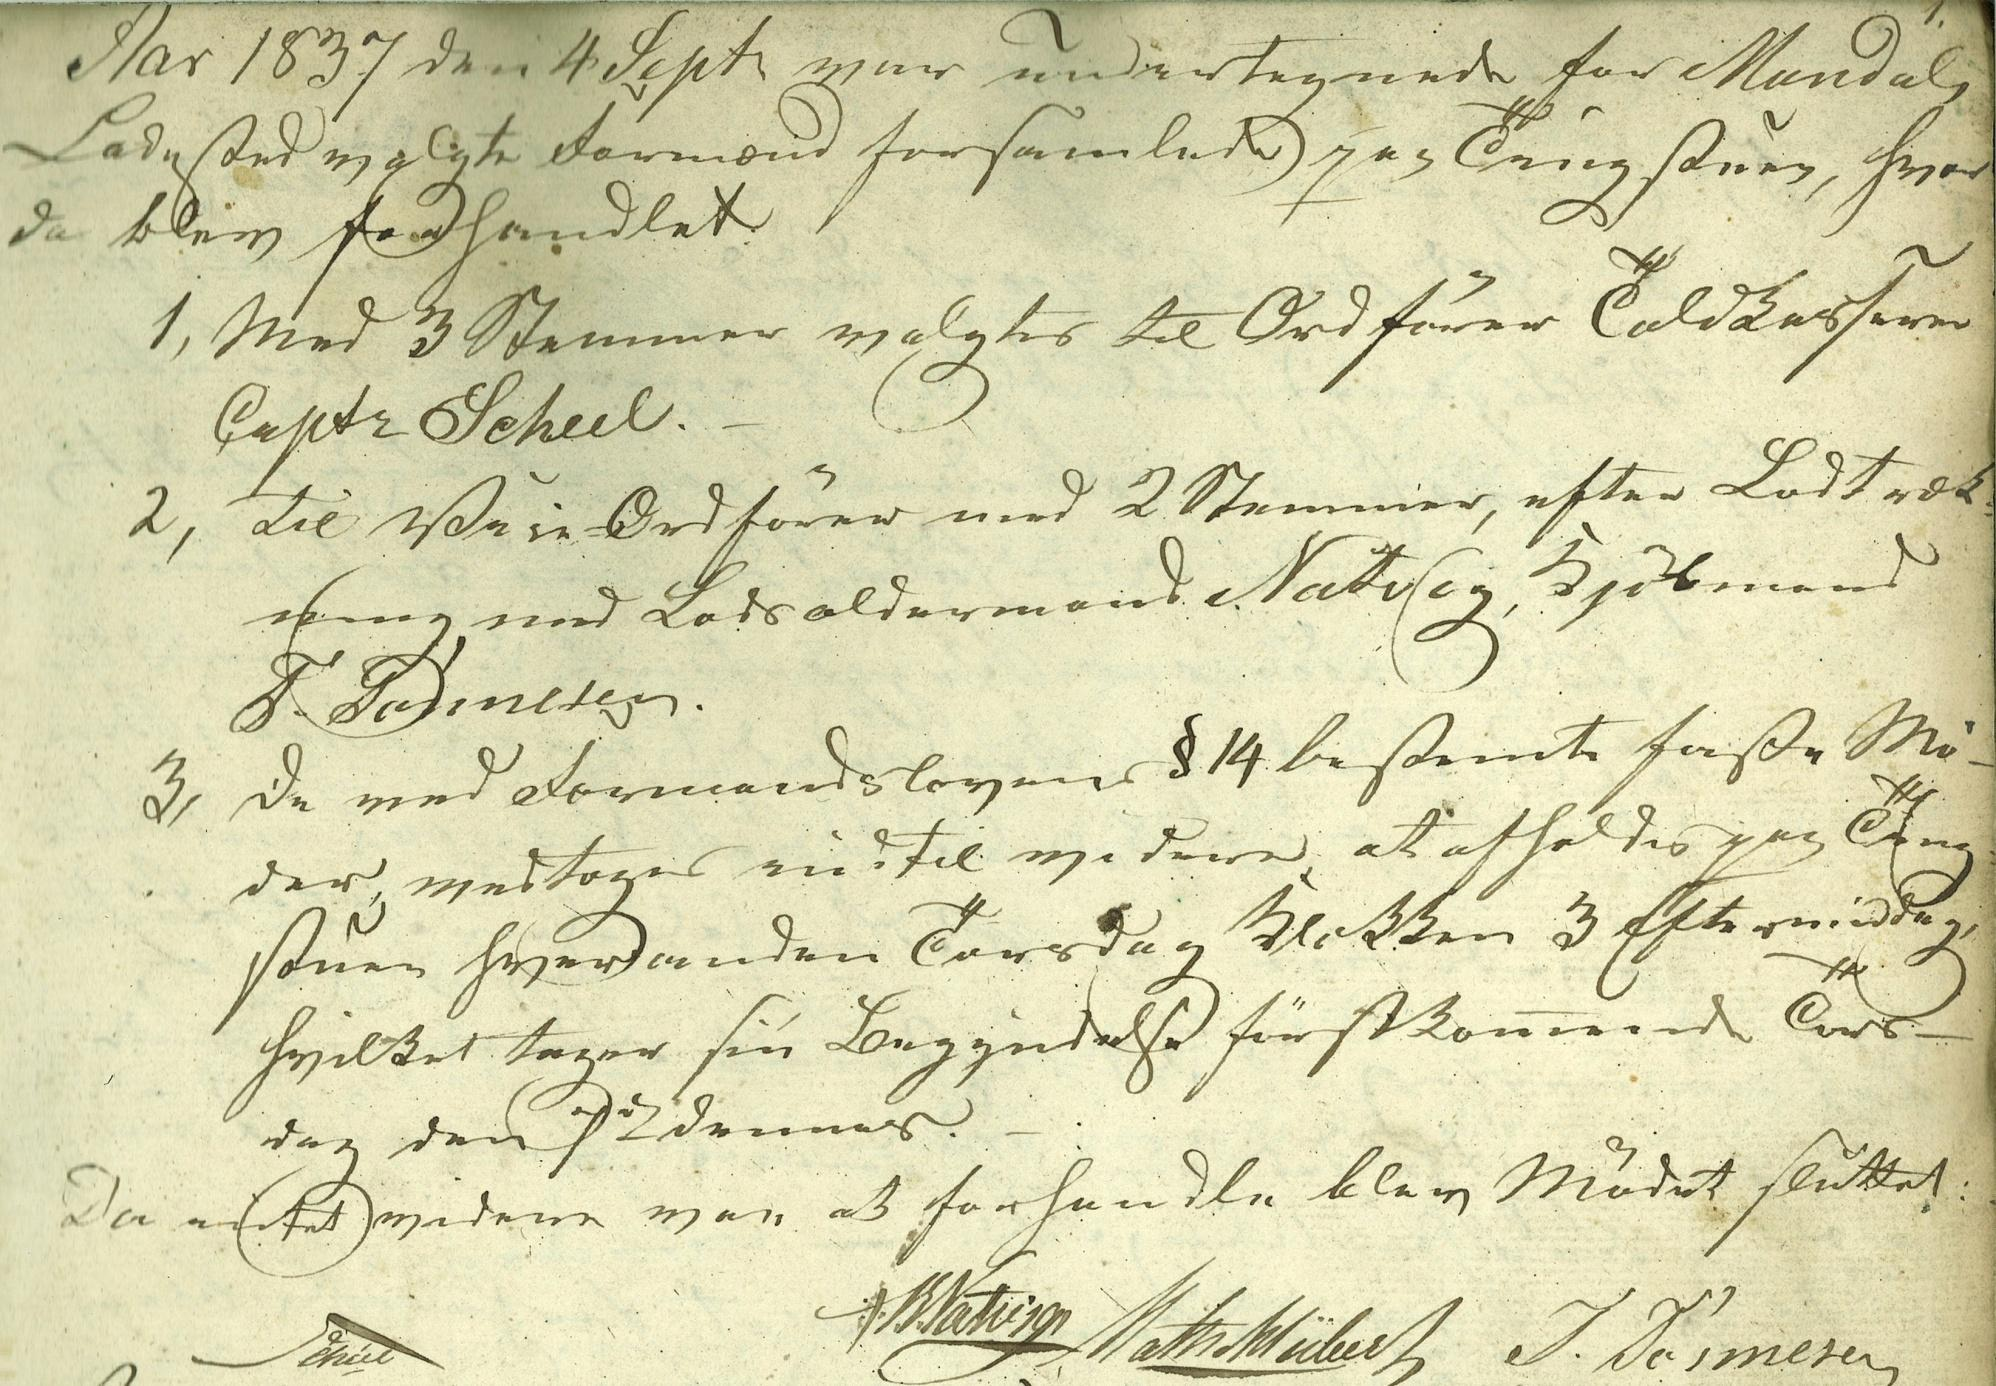 1.
Aar 1837 den 4 Septr var undertegnede for Mandals
Ladested valgte Formænd forsamlede paa Tingstuen, hvor
da blev forhandlet
1, Med 3 Stemmer valgtes til Ordförer Toldkasserer
Captn Scheel. –
2, til Vice-Ordförer med 2 Stemmer, efter Lodtræk-
ning med Lodsoldermand Natvig, Kjöbmand
T. Tönnesen.
3, De ved Formandslovens § 14 bestemte faste Mö-
der, vedtoges indtil videre at afholdes paa Ting-
stuen hver anden Torsdag Klokken 3 Eftermiddag,
hvilket tager sin Begyndelse förstkommende Tors-
dag den 7de dennes. –
Da intet videre var at forhandle blev Mödet sluttet:
Scheel Natvig T. Tönnesen